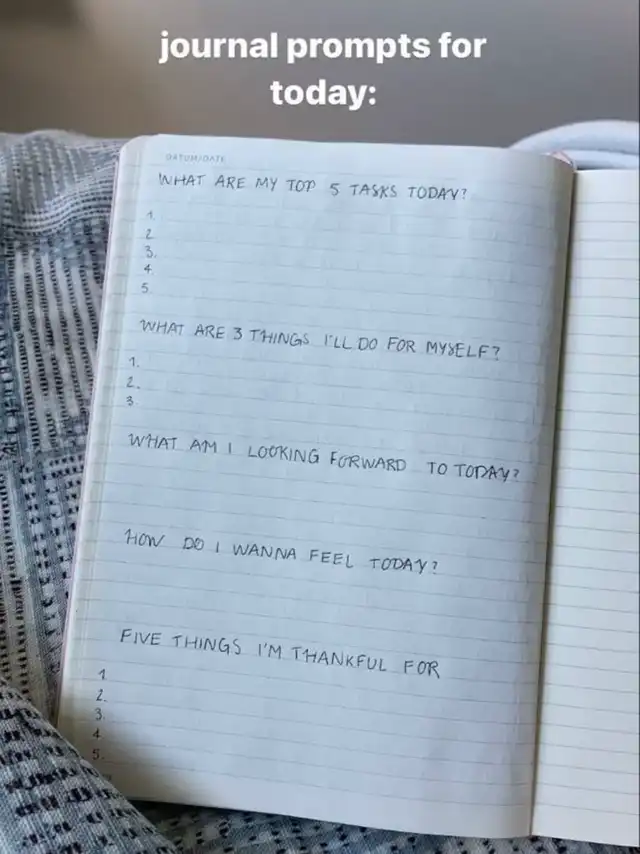 journal prompts for
today:
DATUM/DATE
WHAT ARE MY TOP 5 TASKS TODAY?
1.
2.
3.
4.
5.
WHAT ARE 3 THINGS I'LL DO FOR MYSELF?
1.
2.
3.
WHAT AM I LOOKING FORWARD TO TODAY?
HOW DO I WANNA FEEL TODAY?
FIVE THINGS I'M THANKFUL FOR
1.
2.
3.
4.
5.